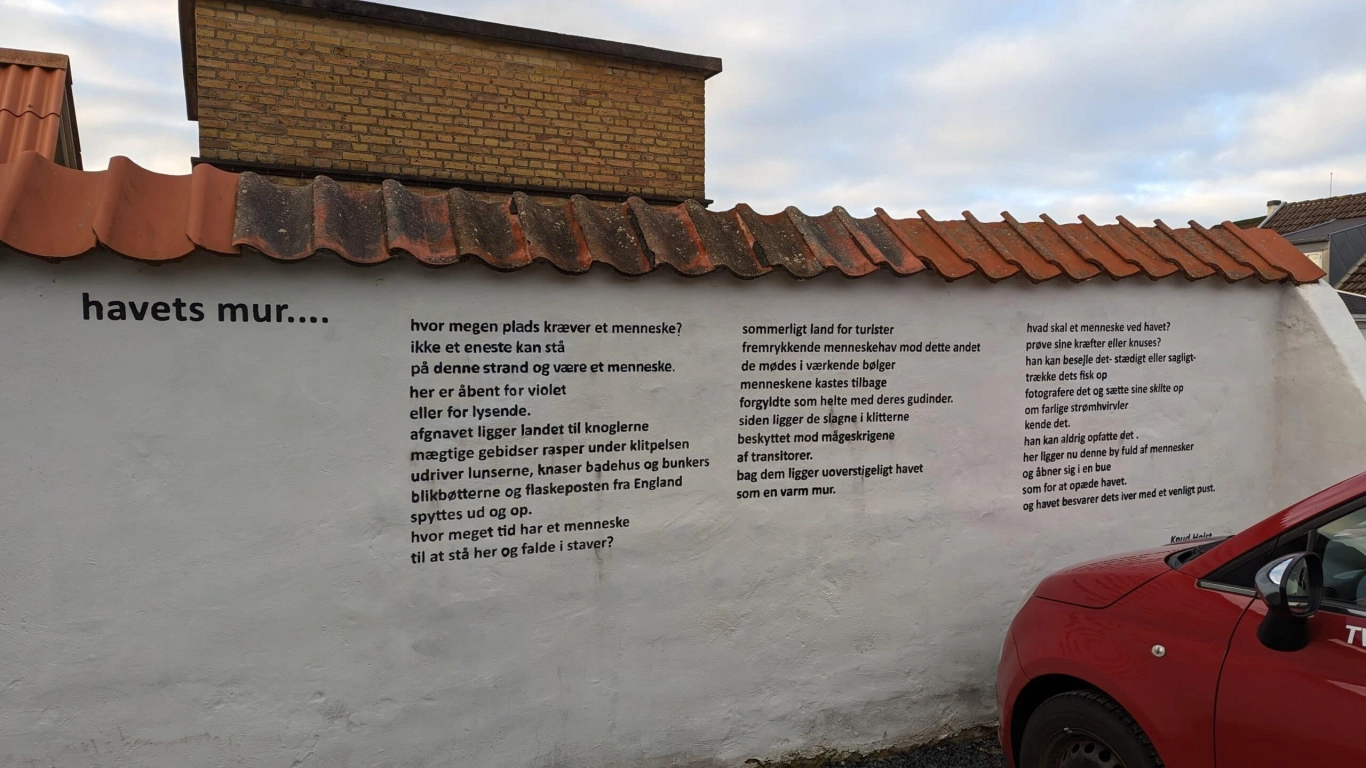 havets mur....
hvor megen plads kræver et menneske?
ikke et eneste kan stå
på denne strand og være et menneske.
her er åbent for violet
eller for lysende.
afgnavet ligger landet til knoglerne
mægtige gebidser rasper under klitpelsen
udriver lunserne, knaser badehus og bunkers
blikbøtterne og flaskeposten fra England
spyttes ud og op.
hvor meget tid har et menneske
til at stå her og falde i staver?
sommerligt land for turister
fremrykkende menneskehav mod dette andet
de mødes i værkende bølger
menneskene kastes tilbage
forgyldte som helte med deres gudinder.
siden ligger de slagne i klitterne
beskyttet mod mågeskrigene
af transitorer.
bag dem ligger uoverstigeligt havet
som en varm mur.
hvad skal et menneske ved havet?
prøve sine kræfter eller knuses?
han kan besejle det- stædigt eller sagligt-
trække dets fisk op
fotografere det og sætte sine skilte op
om farlige strømhvirvler
kende det.
han kan aldrig opfatte det .
her ligger nu denne by fuld af mennesker
og åbner sig i en bue
som for at opæde havet.
og havet besvarer dets iver med et venligt pust.
Knud Holst